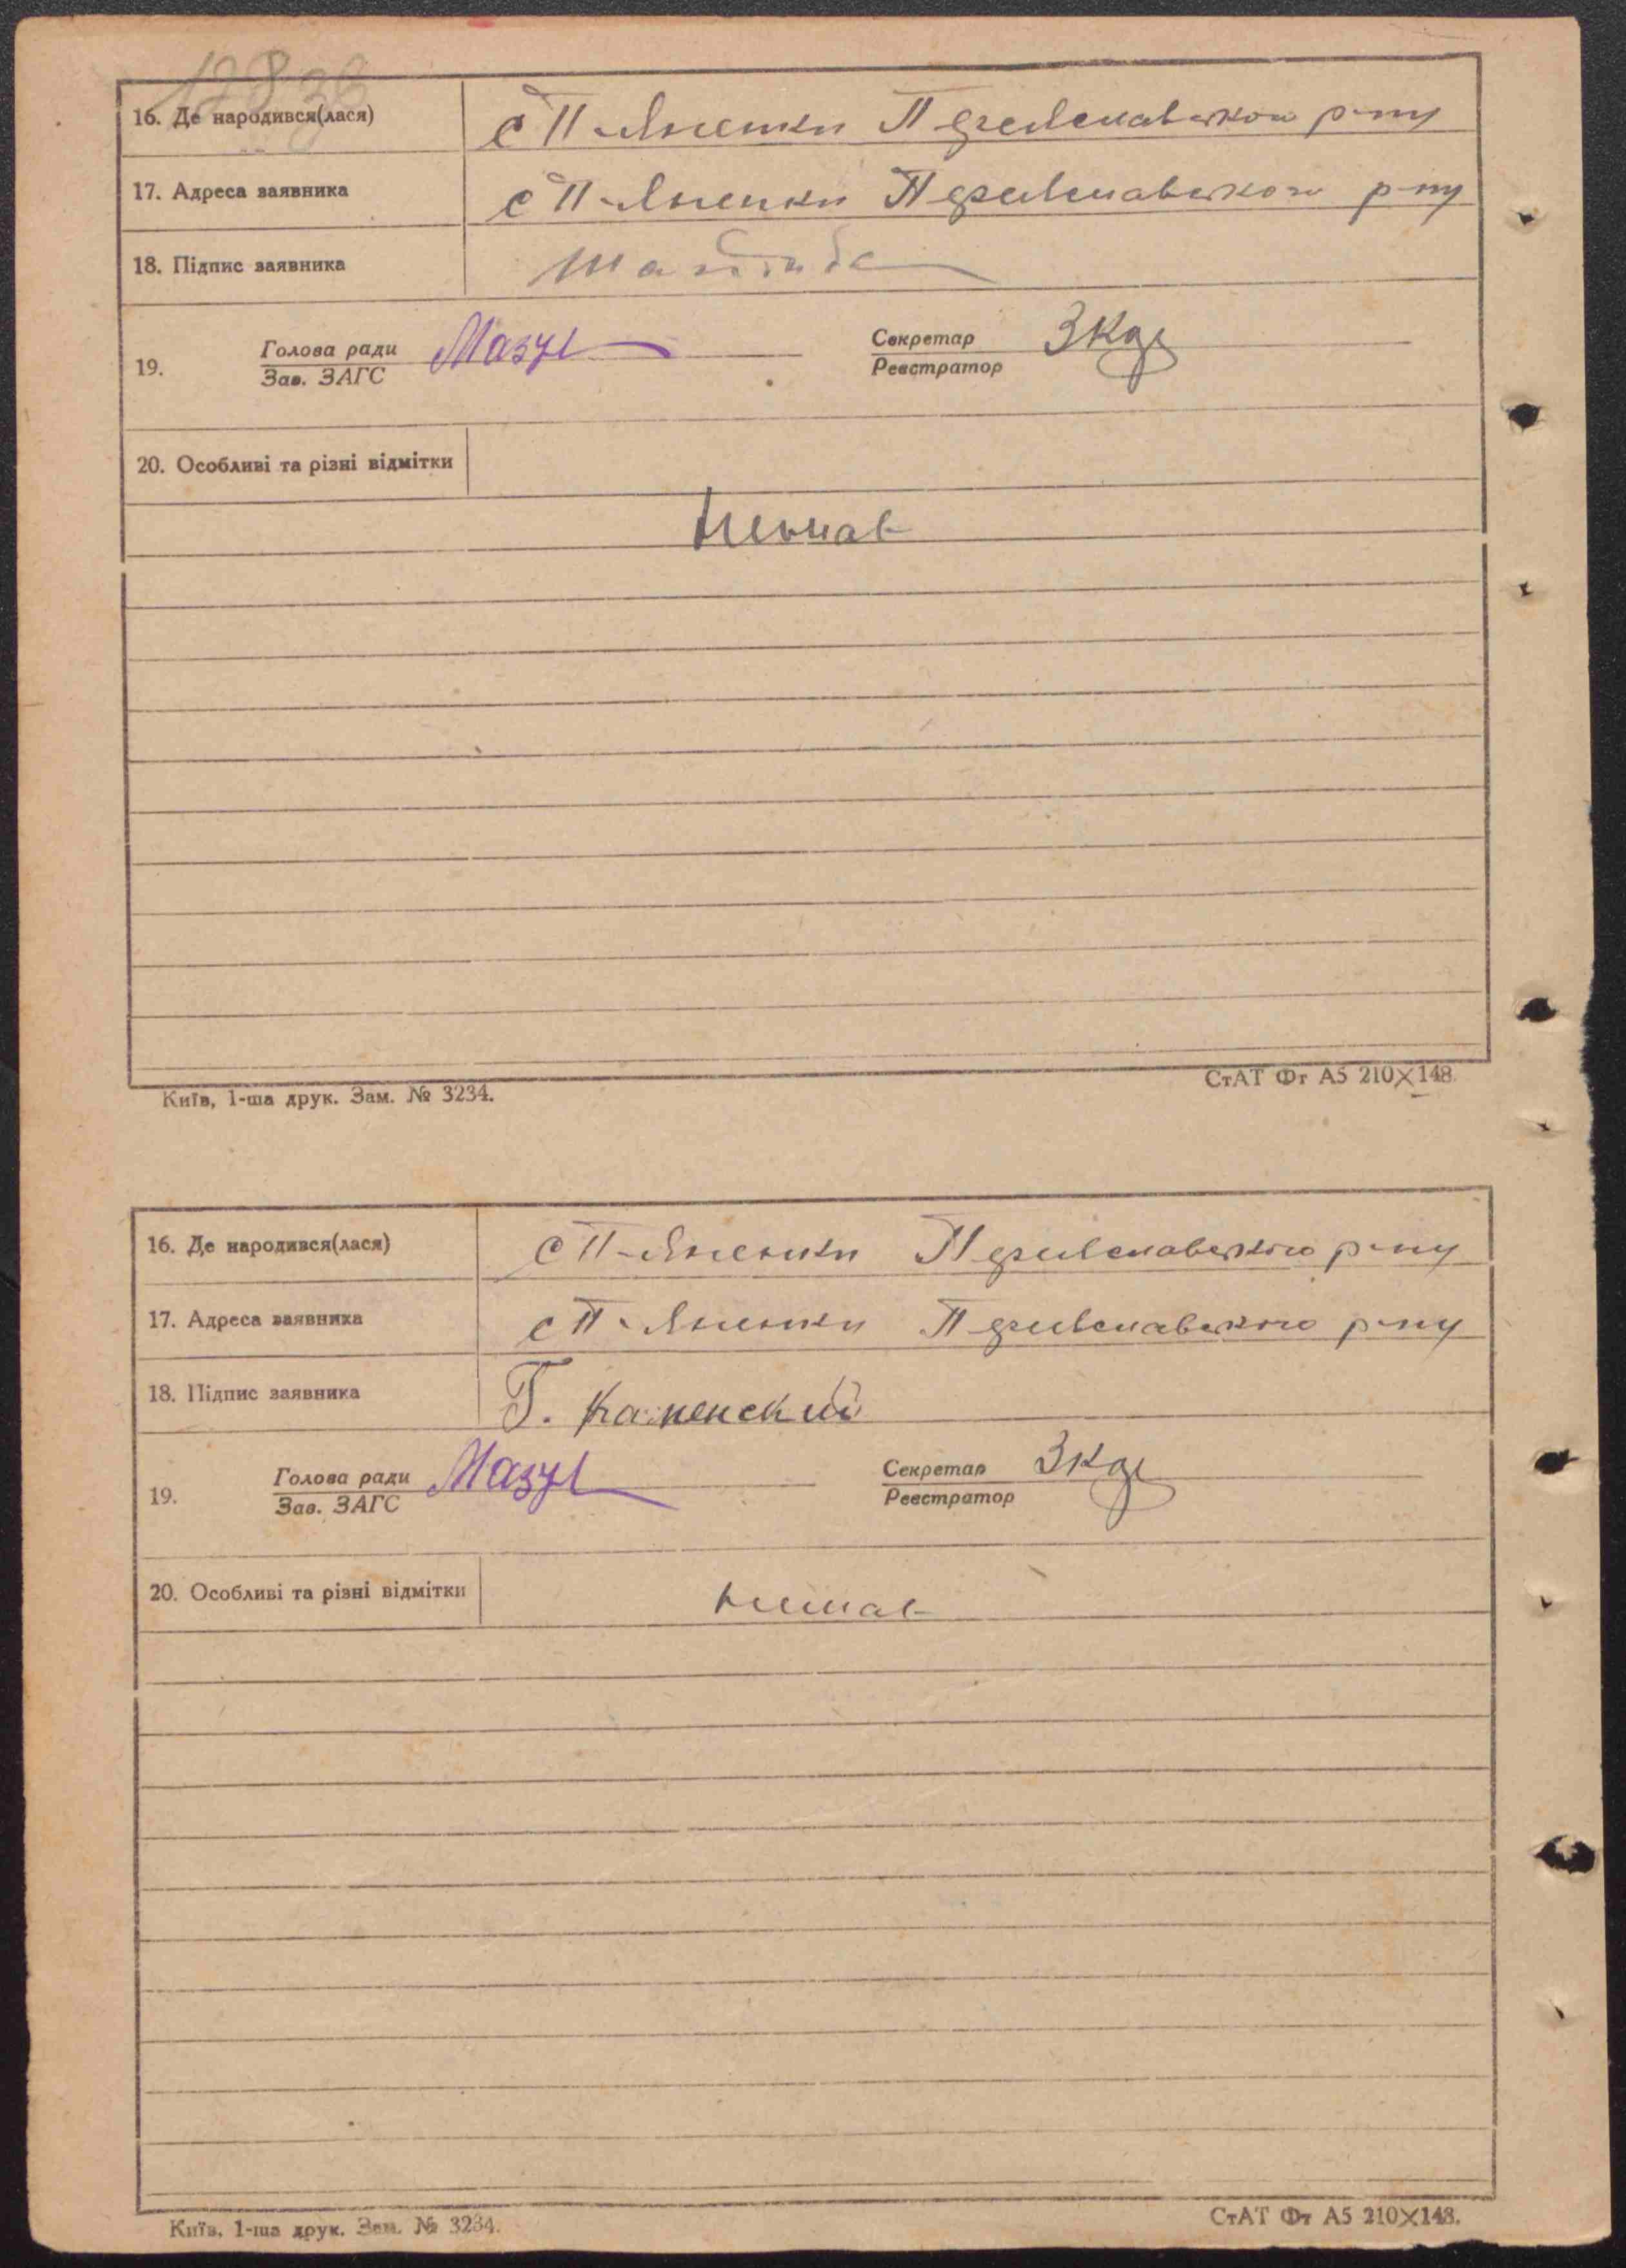 16. Де народився(лася) с П-Яненки Переяславського р-ну
17. Адреса заявника с П-Яненки Переяславського р-ну
18. Підпис заявника
19. Голова ради Мазур Секретар
Зав. ЗАГС Реєстратор
20. Особливі та різні відмітки
Немає
Київ, 1-ша друк. Зам. № 3234. СтАТ Фт А5 210×148.
16. Де народився(лася) с П-Яненки Переяславського р-ну
17. Адреса заявника с П-Яненки Переяславського р-ну
18. Підпис заявника Г. Каменский
19. Голова ради Мазур Секретар
Зав. ЗАГС Реєстратор
20. Особливі та різні відмітки немає
Київ, 1-ша друк. Зам. № 3234. СтАТ Фт А5 210×148.